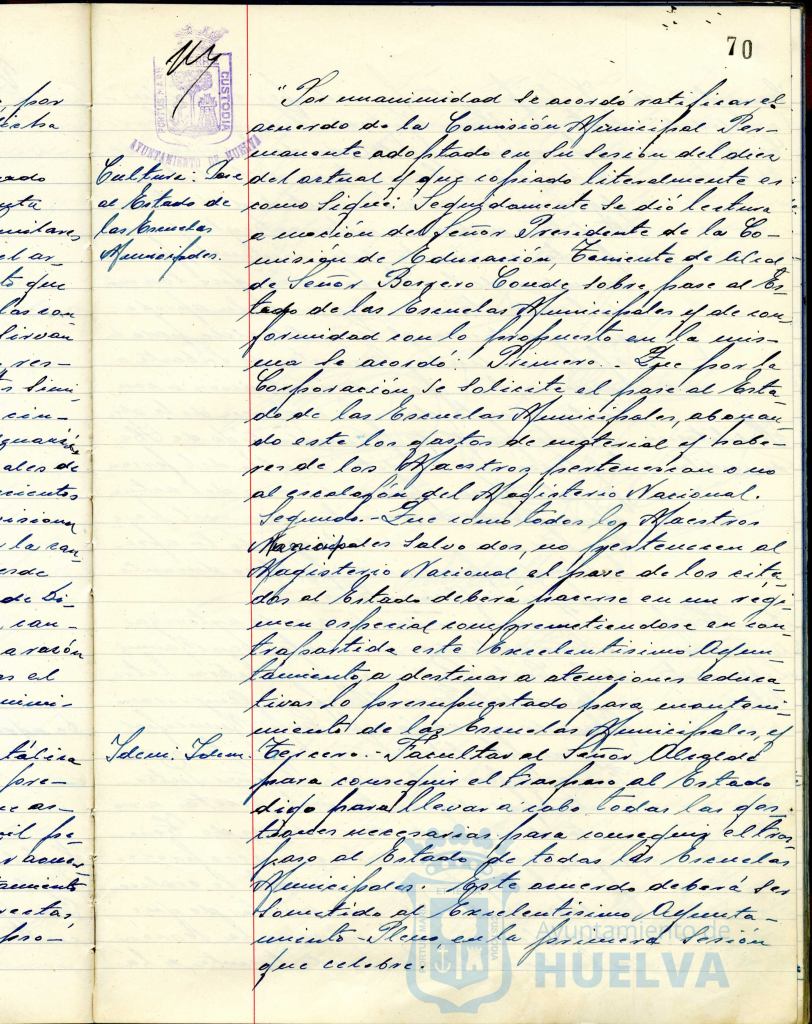 70
"Por unanimidad se acordó ratificar el
acuerdo de la Comisión Municipal Per-
manente adoptado en su sesión del diez
del actual y que copiado literalmente es
como sigue: Seguidamente se dió lectura
a moción del Señor Presidente de la Co-
misión de Educación, Teniente de Alcal
de Señor Borrero Conde sobre pase al Es-
tado de las Escuelas Municipales y de con
formidad con lo propuesto en la mis-
ma se acordó: Primero.- Que por la
Corporación se solicite el pase al Esta-
do de las Escuelas Municipales, abonan-
do este los gastos de material y habe-
res de los Maestros pertenezcan o no
al escalafón del Magisterio Nacional.
Segundo.- Que como todos lo Maestros
Municipales salvo dos, no pertenecen al
Magisterio Nacional el pase de los cita-
dos al Estado deberá hacerse en un régi-
men especial comprometiendose en con
trapartida este Excelentísimo Ayun-
tamiento, a destinar a atenciones educa-
tivas lo presupuestado para manteni-
miento de las Escuelas Municipales, y
Tercero.- Facultar al Señor Alcalde
para conseguir el traspaso al Estado
digo para llevar a cabo todas las ges-
tiones necesarias para conseguir el tras
paso al Estado de todas las Escuelas
Municipales. Este acuerdo deberá ser
sometido al Excelentísimo Ayunta-
miento-Pleno en la primera sesión
que celebre.
Cultura: Pase
al Estado de
las Escuelas
Municipales.
Idem: Idem.
CUSTODIA
AYUNTAMIENTO DE HUELVA
Ayuntamiento de
HUELVA
por
dicha
el ar-
to que
las con
sirvan
res-
simi
cin-
ales de
la can
de Di-
can-
a razón
el
pre-
as-
tamiento